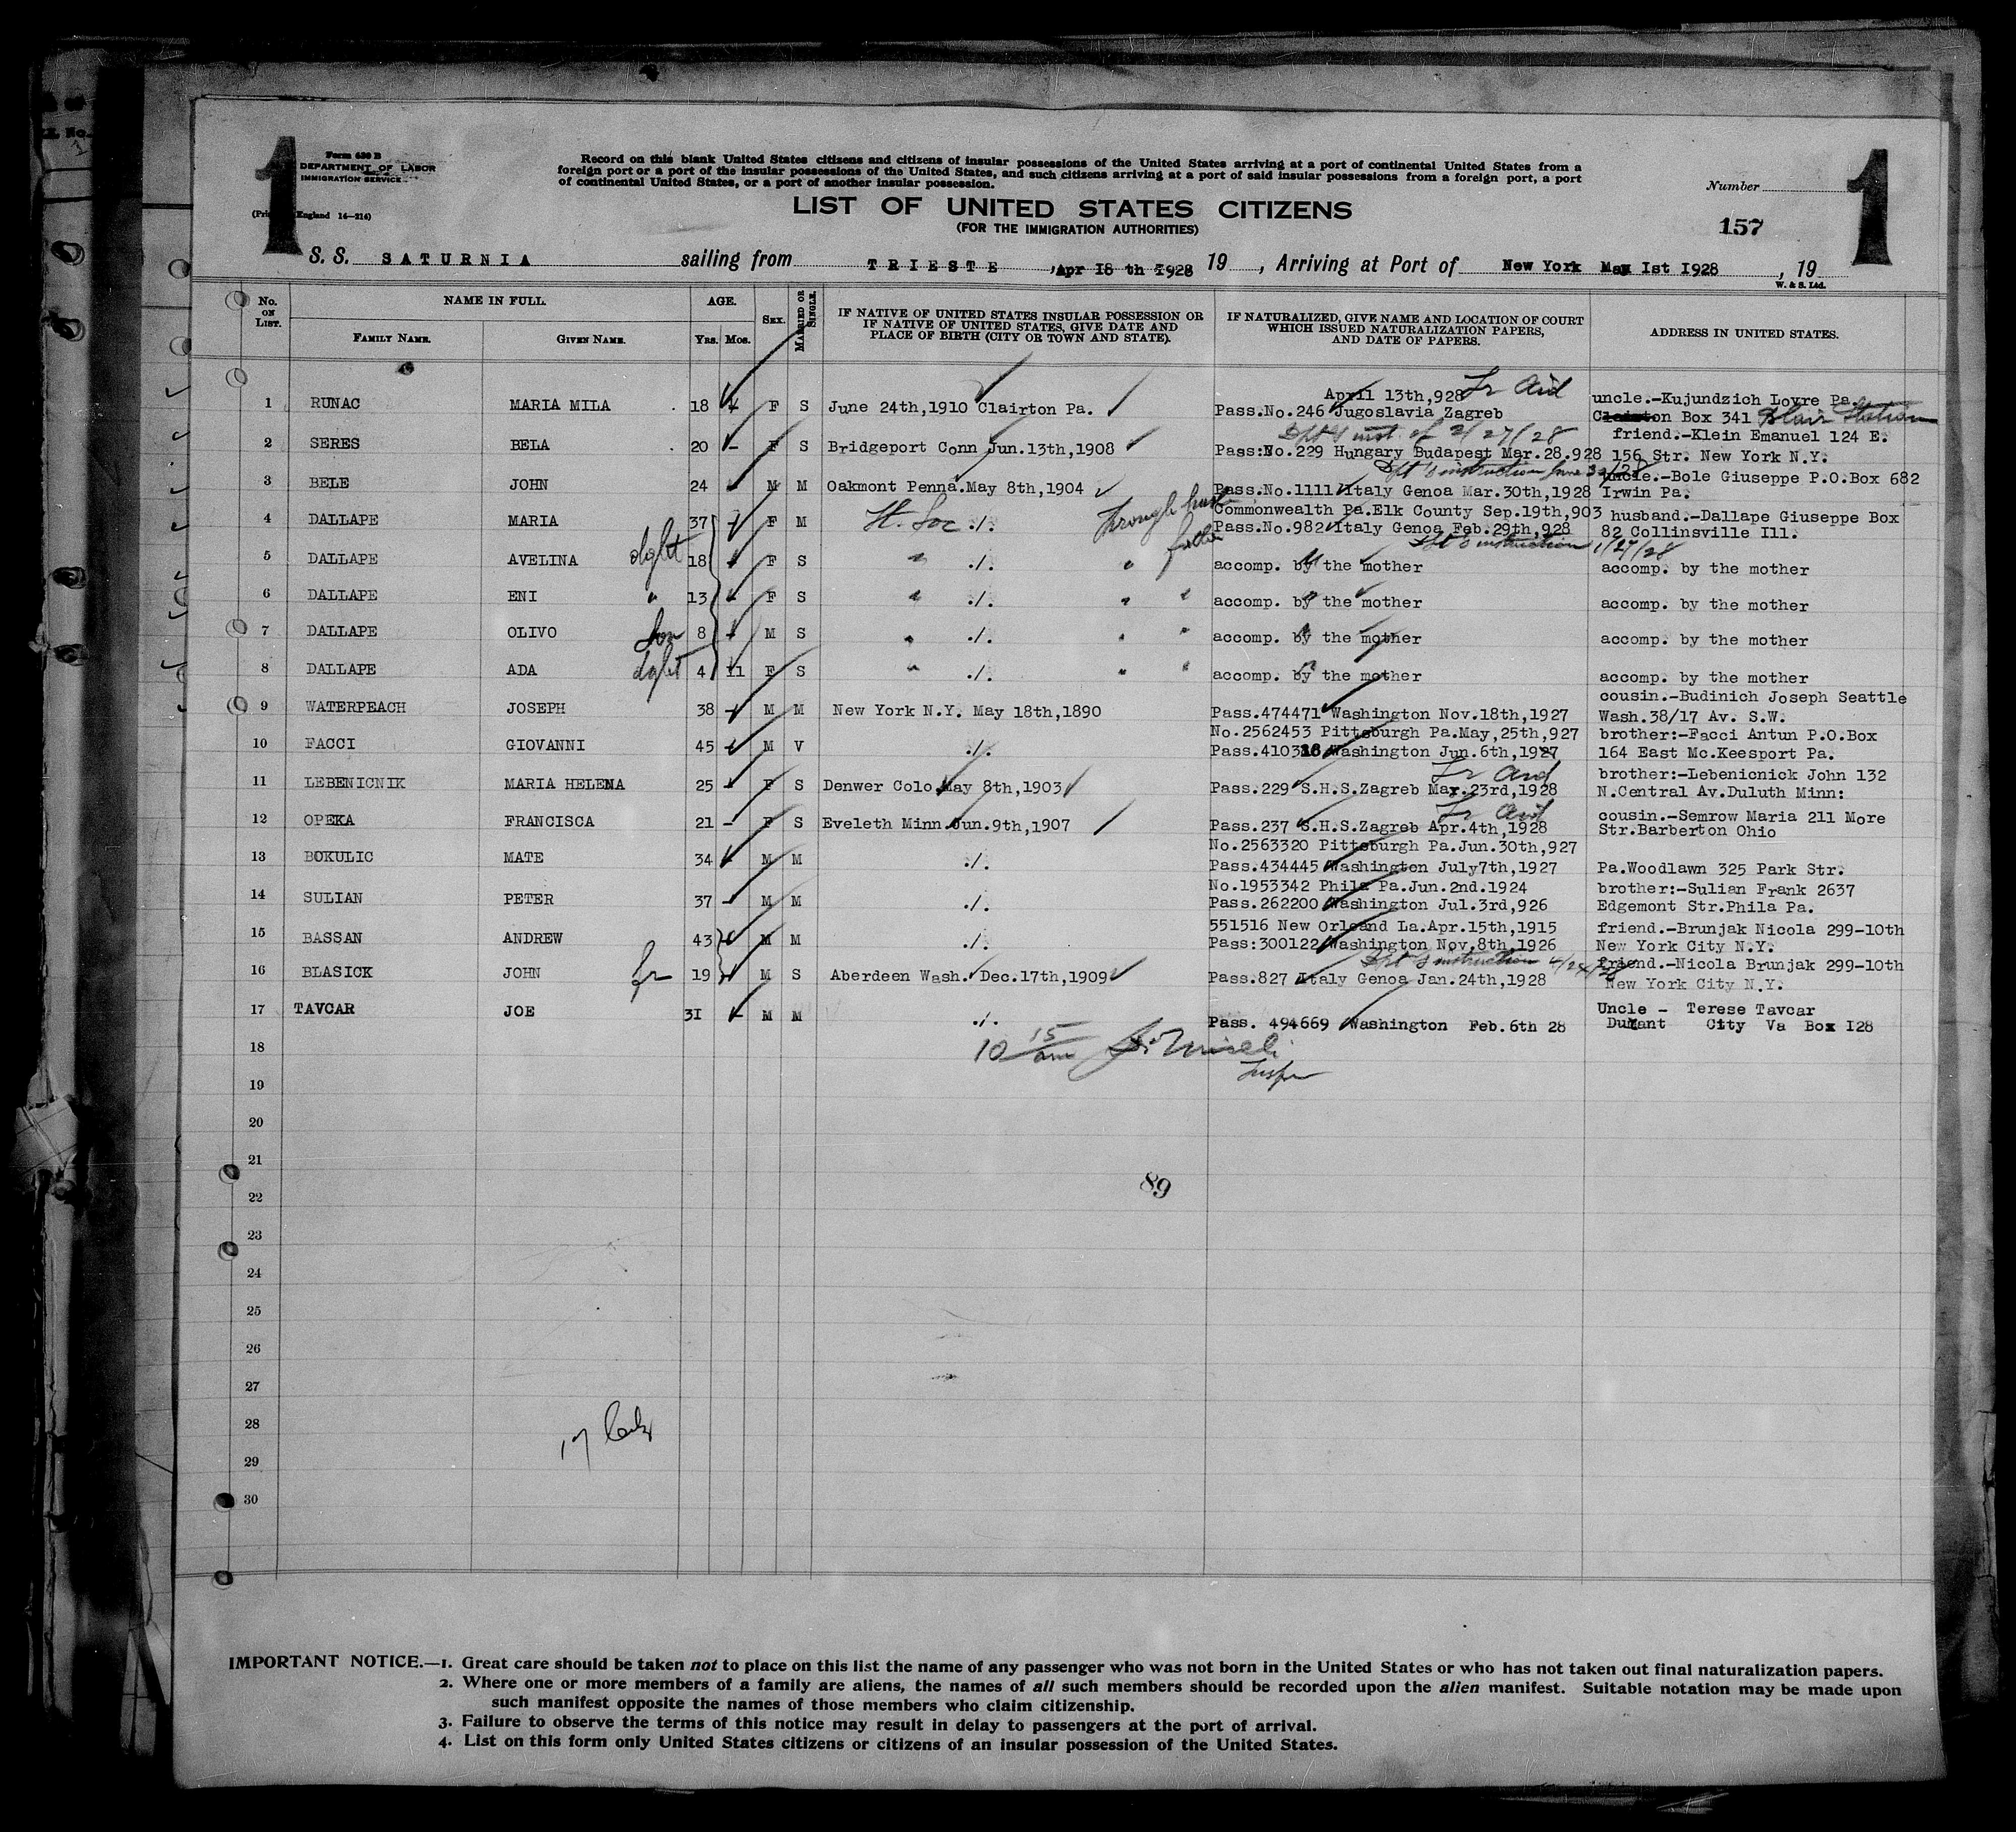 1
Form 630 B
DEPARTMENT OF LABOR
IMMIGRATION SERVICE
England 14—214)
Record on this blank United States citizens and citizens of insular possessions of the United States arriving at a port of continental United States from a
foreign port or a port of the insular possessions of the United States, and such citizens arriving at a port of said insular possessions from a foreign port, a port
of continental United States, or a port of another insular possession.
LIST OF UNITED STATES CITIZENS
(FOR THE IMMIGRATION AUTHORITIES)
Number
157
1
S. S. SATURNIA sailing from TRIESTE ,Apr 18 th 1928 19 , Arriving at Port of New York May 1st 1928 , 19
W. & S. Ltd.
No. ON LIST. NAME IN FULL. AGE. SEX. MARRIED OR SINGLE. IF NATIVE OF UNITED STATES INSULAR POSSESSION OR IF NATIVE OF UNITED STATES, GIVE DATE AND PLACE OF BIRTH (CITY OR TOWN AND STATE). IF NATURALIZED, GIVE NAME AND LOCATION OF COURT WHICH ISSUED NATURALIZATION PAPERS, AND DATE OF PAPERS. ADDRESS IN UNITED STATES.
FAMILY NAME. GIVEN NAME. Yrs. Mos.
April 13th,928 Tr Aid uncle.-Kujundzich Lovre Pa.
1 RUNAC MARIA MILA 18 - F S June 24th,1910 Clairton Pa. Pass.No.246 Jugoslavia Zagreb Clairton Box 341 Blair Station
Dpt's inst. of 2/27/28 friend.-Klein Emanuel 124 E.
2 SERES BELA 20 - F S Bridgeport Conn Jun.13th,1908 Pass:No.229 Hungary Budapest Mar.28.928 156 Str. New York N.Y.
Dpt's instruction uncle.-Bole Giuseppe P.O.Box 682
3 BELE JOHN 24 - M M Oakmont Penna.May 8th,1904 Pass.No.1111 Italy Genoa Mar.30th,1928 Irwin Pa.
Commonwealth Pa.Elk County Sep.19th,903 husband.-Dallape Giuseppe Box
4 DALLAPE MARIA 37 - F M ./. Through Pass.No.982 Italy Genoa Feb.29th,928 82 Collinsville Ill.
Dpt's instruction 1/27/28
5 DALLAPE AVELINA dght 18 - F S " ./. " father accomp. by the mother accomp. by the mother
6 DALLAPE ENI " 13 - F S " ./. " " accomp. by the mother accomp. by the mother
7 DALLAPE OLIVO Son 8 - M S " ./. " " accomp. by the mother accomp. by the mother
8 DALLAPE ADA dght 4 11 F S " ./. " " accomp. by the mother accomp. by the mother
cousin.-Budinich Joseph Seattle
9 WATERPEACH JOSEPH 38 - M M New York N.Y. May 18th,1890 Pass.474471 Washington Nov.18th,1927 Wash.38/17 Av. S.W.
No.2562453 Pittsburgh Pa.May,25th,927 brother:-Facci Antun P.O.Box
10 FACCI GIOVANNI 45 - M V ./. Pass.410318 Washington Jun.6th,1927 164 East Mc.Keesport Pa.
Tr Aid brother:-Lebenicnick John 132
11 LEBENICNIK MARIA HELENA 25 - F S Denwer Colo.May 8th,1903 Pass.229 S.H.S.Zagreb Mar.23rd,1928 N.Central Av.Duluth Minn:
Tr Aid cousin.-Semrow Maria 211 More
12 OPEKA FRANCISCA 21 - F S Eveleth Minn.Jun.9th,1907 Pass.237 S.H.S.Zagreb Apr.4th,1928 Str.Barberton Ohio
No.2563320 Pittsburgh Pa.Jun.30th,927
13 BOKULIC MATE 34 - M M ./. Pass.434445 Washington July7th,1927 Pa.Woodlawn 325 Park Str.
No.1953342 Phila Pa.Jun.2nd.1924 brother:-Sulian Frank 2637
14 SULIAN PETER 37 - M M ./. Pass.262200 Washington Jul.3rd,926 Edgemont Str.Phila Pa.
551516 New Orleand La.Apr.15th,1915 friend.-Brunjak Nicola 299-10th
15 BASSAN ANDREW 43 - M M ./. Pass:300122 Washington Nov.8th,1926 New York City N.Y.
Dpt's instruction friend.-Nicola Brunjak 299-10th
16 BLASICK JOHN 19 - M S Aberdeen Wash. Dec.17th,1909 Pass.827 Italy Genoa Jan.24th,1928 New York City N.Y.
Uncle - Terese Tavcar
17 TAVCAR JOE 31 - M M ./. Pass. 494669 Washington Feb.6th 28 Durant City Va Box 128
18 10 15 am
Insp
19
20
21
89
22
23
24
25
26
27
28
17
29
30
IMPORTANT NOTICE.—1. Great care should be taken not to place on this list the name of any passenger who was not born in the United States or who has not taken out final naturalization papers.
2. Where one or more members of a family are aliens, the names of all such members should be recorded upon the alien manifest. Suitable notation may be made upon
such manifest opposite the names of those members who claim citizenship.
3. Failure to observe the terms of this notice may result in delay to passengers at the port of arrival.
4. List on this form only United States citizens or citizens of an insular possession of the United States.